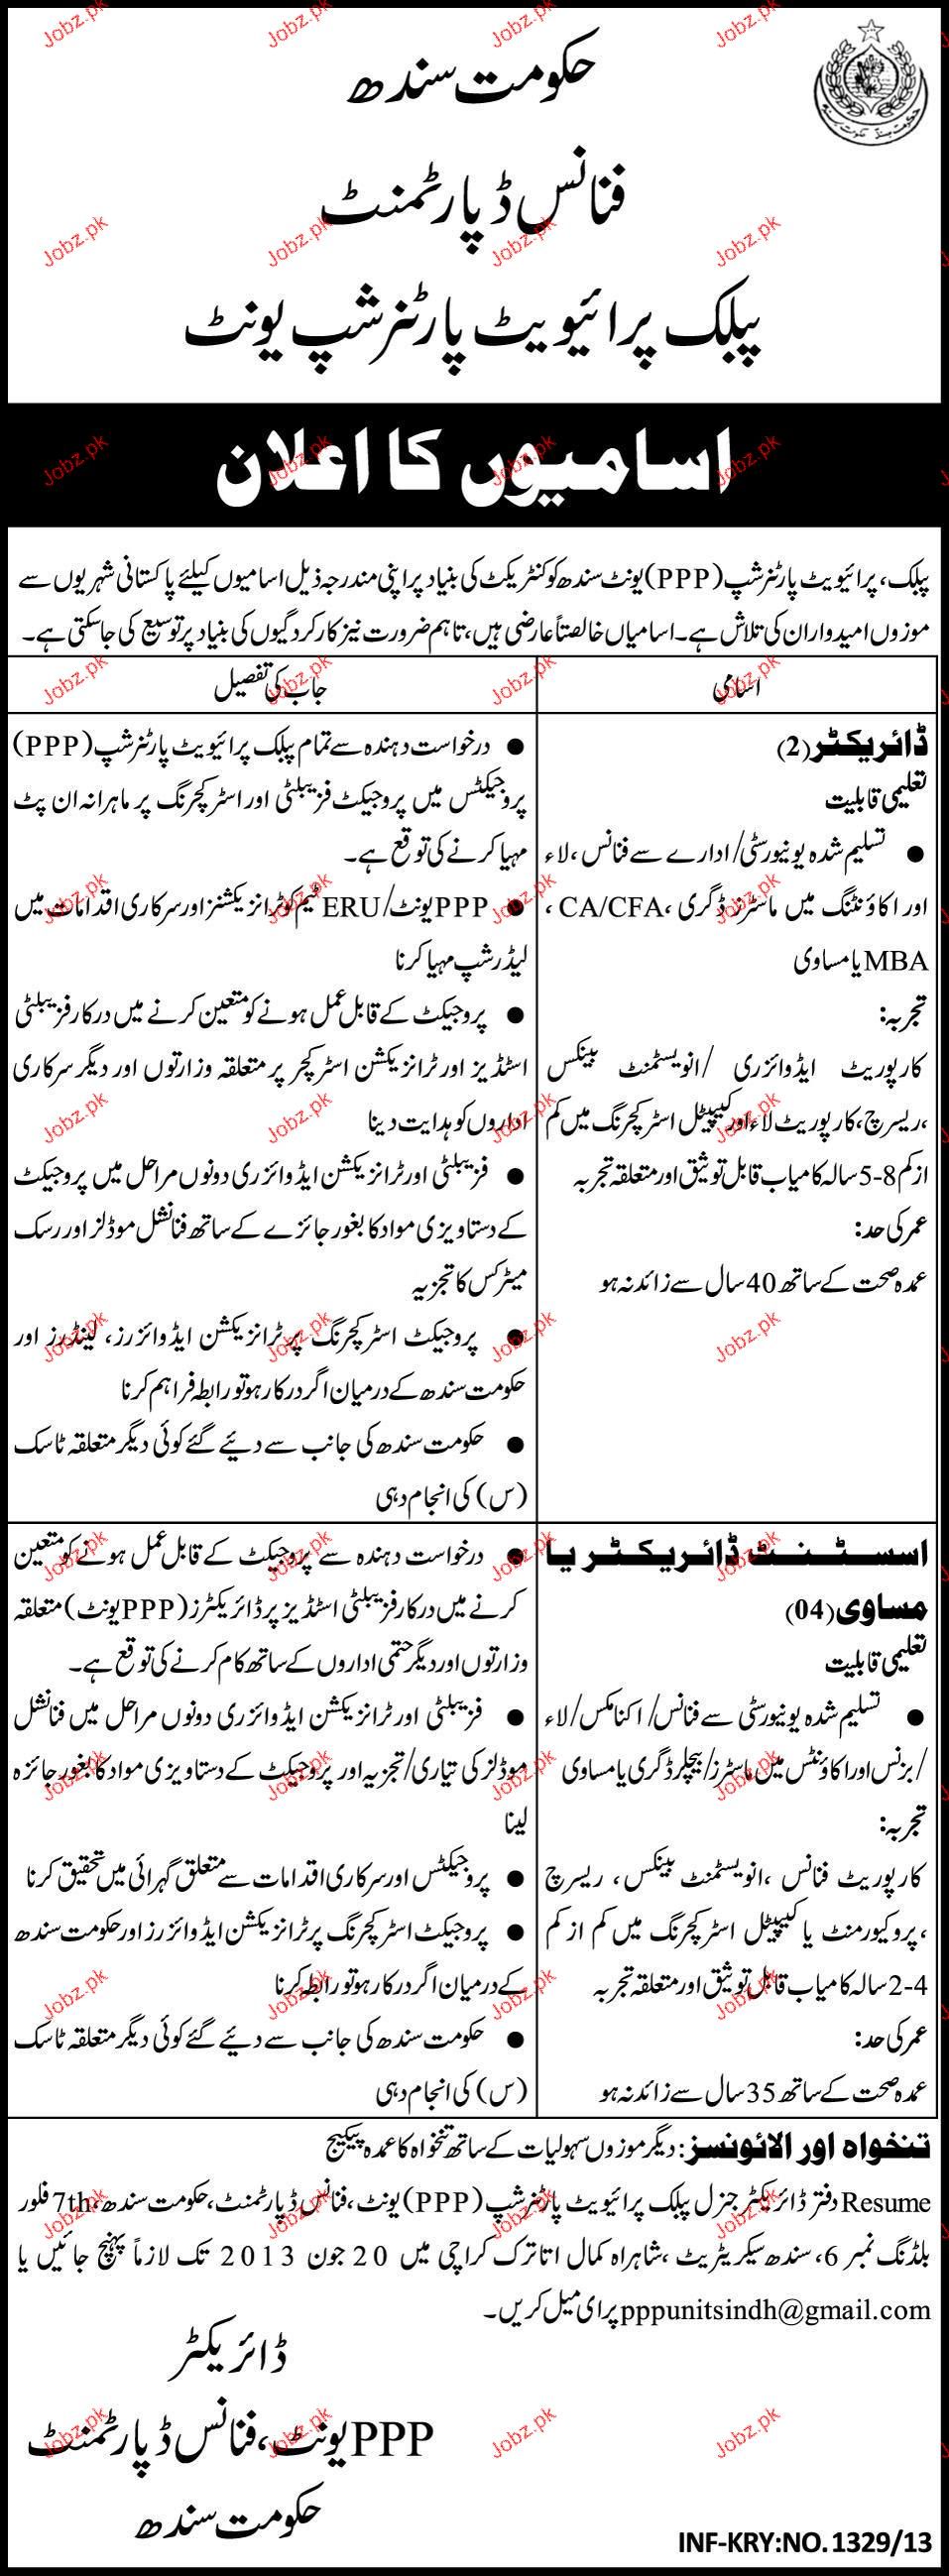 حکومت سندھ
فنانس ڈپارٹمنٹ
پبلک پرائیویٹ پارٹنر شپ یونٹ
اسامیوں کا اعلان
پبلک، پرائیویٹ پارٹنرشپ (PPP) یونٹ سندھ کو کنٹریکٹ کی بنیاد پر اپنی مندرجہ ذیل اسامیوں کیلئے پاکستانی شہریوں سے
موزوں امیدواران کی تلاش ہے۔ اسامیاں خالصتاً عارضی ہیں، تاہم ضرورت نیز کارکردگیوں کی بنیاد پر توسیع کی جاسکتی ہے۔
اسامی
جاب کی تفصیل
ڈائریکٹر (2)
تعلیمی قابلیت
● تسلیم شدہ یونیورسٹی/ ادارے سے فنانس، لاء
اور اکاؤنٹنگ میں ماسٹرز ڈگری، CA/CFA،
MBA یا مساوی
تجربہ:
کارپوریٹ ایڈوائزری /انویسٹمنٹ بینکس
،ریسرچ، کارپوریٹ لاء اور کیپیٹل اسٹرکچرنگ میں کم
از کم 8-5 سالہ کامیاب قابل توثیق اور متعلقہ تجربہ
عمر کی حد:
عمدہ صحت کے ساتھ 40 سال سے زائد نہ ہو
● درخواست دہندہ سے تمام پبلک پرائیویٹ پارٹنرشپ (PPP)
پروجیکٹس میں پروجیکٹ فزیبلٹی اور اسٹرکچرنگ پر ماہرانہ ان پٹ
مہیا کرنے کی توقع ہے۔
● PPP یونٹ/ERU ٹیم کو ٹرانزیکشنز اور سرکاری اقدامات میں
لیڈرشپ مہیا کرنا
● پروجیکٹ کے قابل عمل ہونے کو متعین کرنے میں درکار فزیبلٹی
اسٹڈیز اور ٹرانزیکشن اسٹرکچر پر متعلقہ وزارتوں اور دیگر سرکاری
اداروں کو ہدایت دینا
● فزیبلٹی اور ٹرانزیکشن ایڈوائزری دونوں مراحل میں پروجیکٹ
کے دستاویزی مواد کا بغور جائزے کے ساتھ فنانشل موڈلز اور رسک
میٹرکس کا تجزیہ
● پروجیکٹ اسٹرکچرنگ پر ٹرانزیکشن ایڈوائزرز، لینڈرز اور
حکومت سندھ کے درمیان اگر درکار ہو تو رابطہ فراہم کرنا
● حکومت سندھ کی جانب سے دیئے گئے کوئی دیگر متعلقہ ٹاسک
(س) کی انجام دہی
اسسٹنٹ ڈائریکٹر یا
مساوی (04)
تعلیمی قابلیت
● تسلیم شدہ یونیورسٹی سے فنانس/ اکنامکس/ لاء
/بزنس اور اکاؤنٹس میں ماسٹرز/ بیچلر ڈگری یا مساوی
تجربہ:
کارپوریٹ فنانس، انویسٹمنٹ بینکس، ریسرچ
،پروکیورمنٹ یا کیپیٹل اسٹرکچرنگ میں کم از کم
2-4 سالہ کامیاب قابل توثیق اور متعلقہ تجربہ
عمر کی حد:
عمدہ صحت کے ساتھ 35 سال سے زائد نہ ہو
● درخواست دہندہ سے پروجیکٹ کے قابل عمل ہونے کو متعین
کرنے میں درکار فزیبلٹی اسٹڈیز پر ڈائریکٹرز (PPP یونٹ) متعلقہ
وزارتوں اور دیگر حتمی اداروں کے ساتھ کام کرنے کی توقع ہے۔
● فزیبلٹی اور ٹرانزیکشن ایڈوائزری دونوں مراحل میں فنانشل
موڈلز کی تیاری/ تجزیہ اور پروجیکٹ کے دستاویزی مواد کا بغور جائزہ
لینا
● پروجیکٹس اور سرکاری اقدامات سے متعلق گہرائی میں تحقیق کرنا
● پروجیکٹ اسٹرکچرنگ پر ٹرانزیکشن ایڈوائزرز اور حکومت سندھ
کے درمیان اگر درکار ہو تو رابطہ کرنا
● حکومت سندھ کی جانب سے دیئے گئے کوئی دیگر متعلقہ ٹاسک
(س) کی انجام دہی
تنخواہ اور الائونسز: دیگر موزوں سہولیات کے ساتھ تنخواہ کا عمدہ پیکیج
Resume دفتر ڈائریکٹر جنرل پبلک پرائیویٹ پارٹنرشپ (PPP) یونٹ، فنانس ڈپارٹمنٹ، حکومت سندھ، 7th فلور
بلڈنگ نمبر 6، سندھ سیکریٹریٹ، شاہراہ کمال اتاترک کراچی میں 20 جون 2013 تک لازماً پہنچ جائیں یا
pppunitsindh@gmail.com پر ای میل کریں۔
ڈائریکٹر
PPP یونٹ، فنانس ڈپارٹمنٹ
حکومت سندھ
INF-KRY:NO.1329/13
Jobz.pk